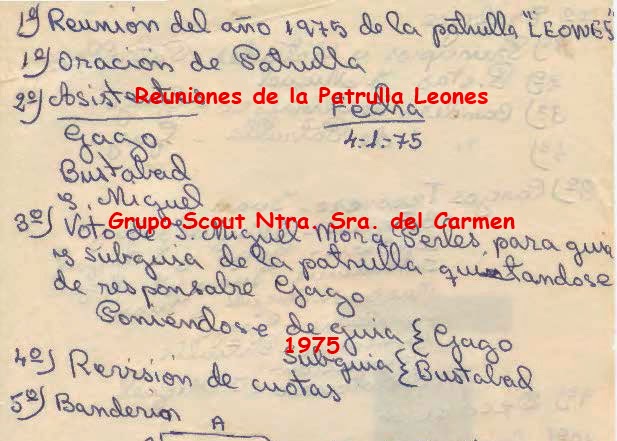 1ª) Reunión del año 1975 de la patrulla "LEONES"
1º) Oración de Patrulla
2º) Asistentes Fecha
Reuniones de la Patrulla Leones
Gago 4=1=75
Bustabad
S. Miguel
Grupo Scout Ntra. Sra. del Carmen
3º) Voto de S. Miguel para guia
y subguia de la patrulla quitandose
de responsable Gago
Poniéndose de guia { Gago
1975
subguia { Bustabad
4º) Revisión de cuotas
5º) Banderin
A